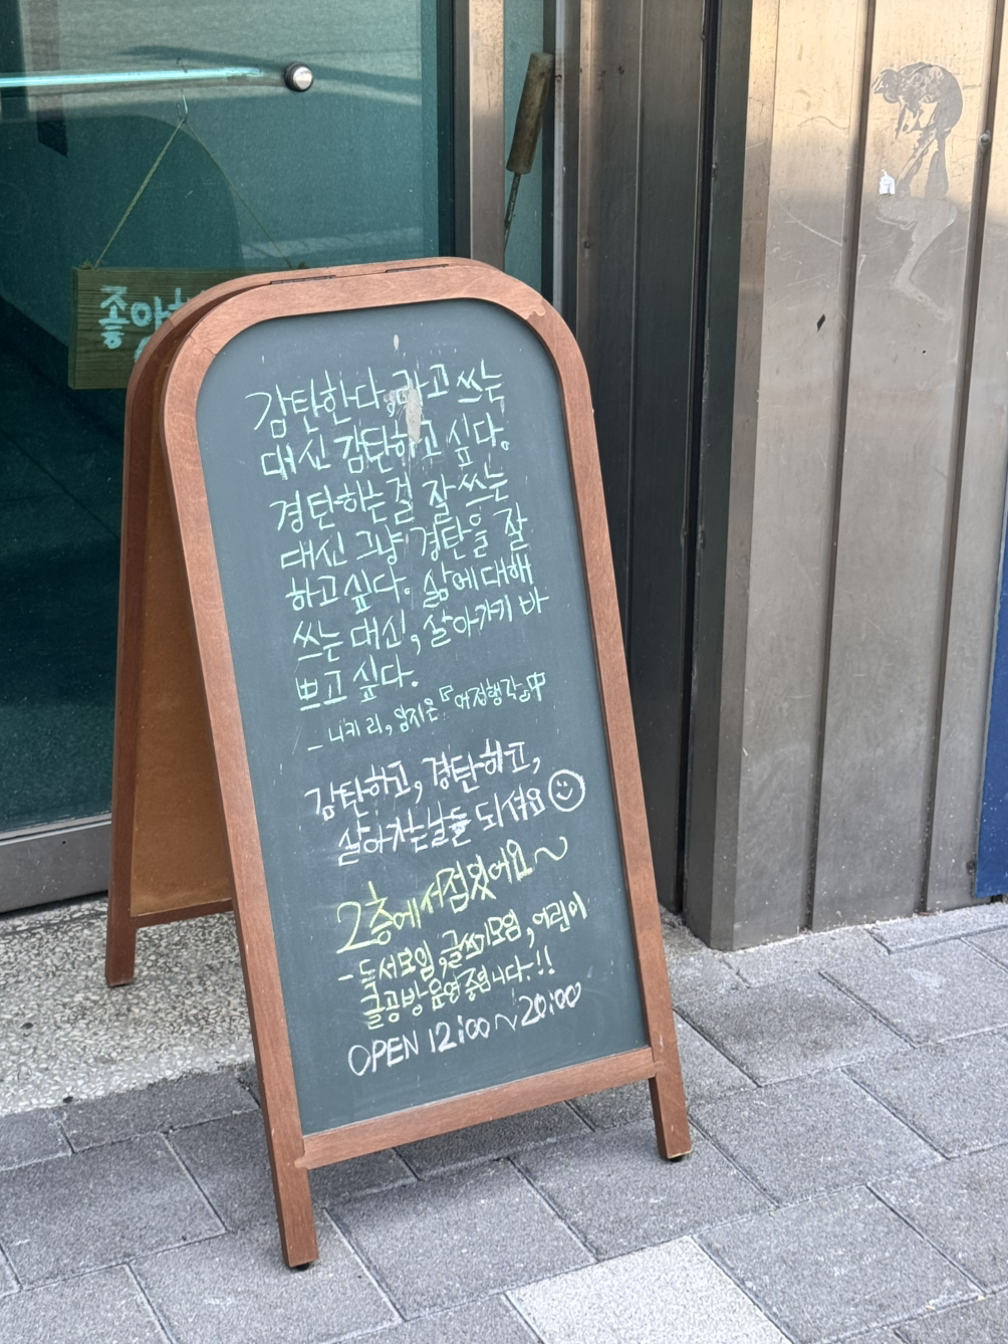 좋아
감탄한다, 라고 쓰는
대신 감탄하고 싶다.
경탄하는 걸 잘 쓰는
대신 그냥 경탄을 잘
하고 싶다. 삶에 대해
쓰는 대신, 살아가기 바
쁘고 싶다.
- 니키 리,
감탄하고, 경탄하고,
살아가는 날들 되셔요
2층에 서점있어요~
- 독서모임, 글쓰기모임, 어린이
글공방 운영중입니다!!
OPEN 12:00~20:00